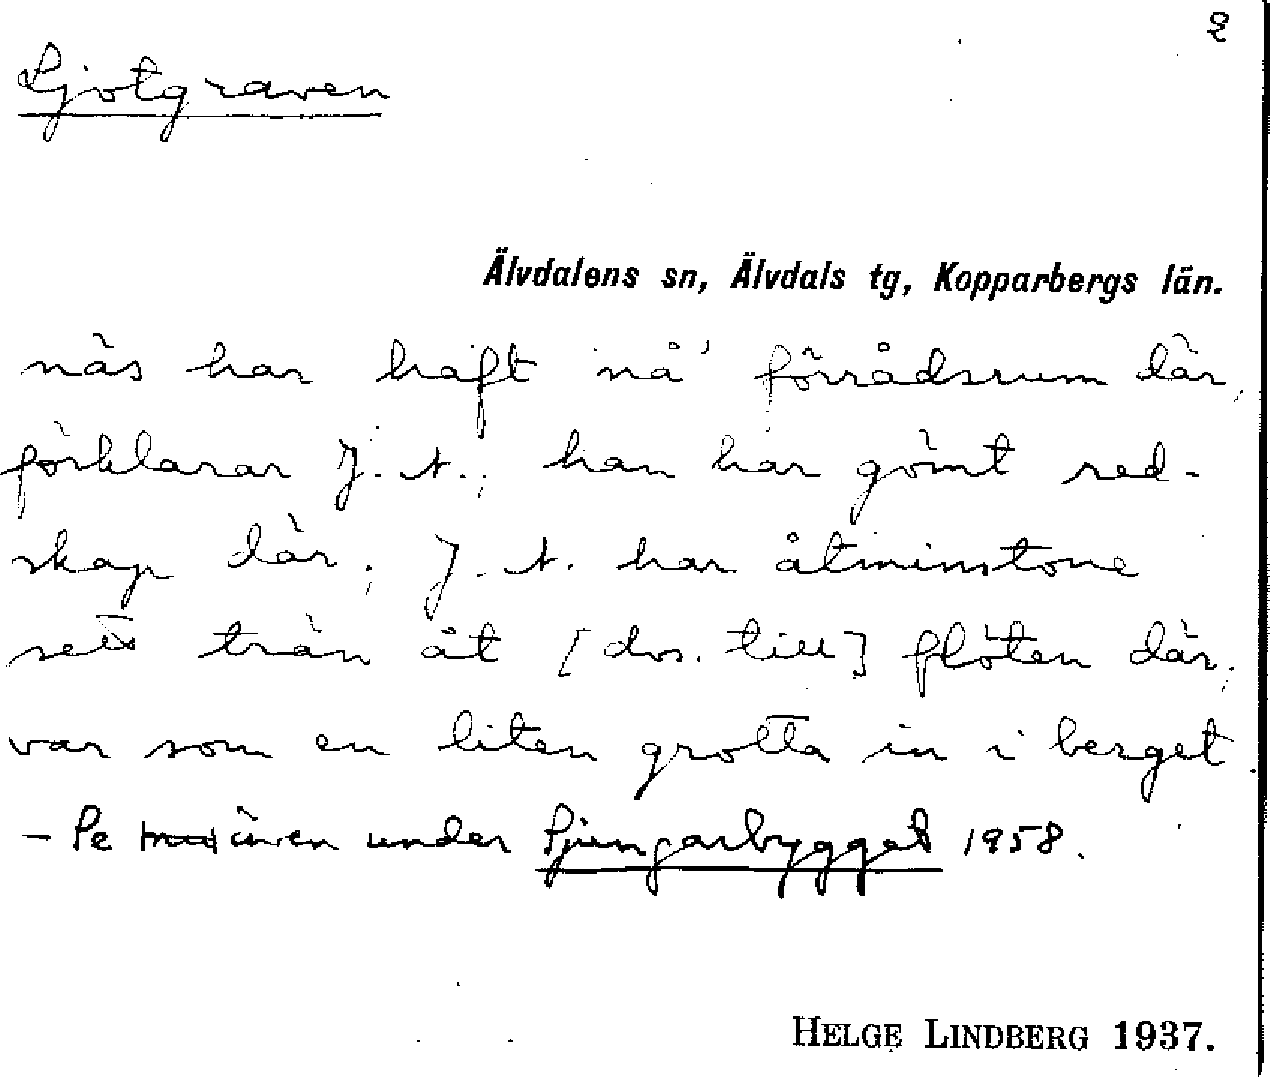 2
Ljotgraven
Älvdalens sn, Älvdals tg, Kopparbergs län.
näs har haft nå' förrådsrum där,
förklarar J. A.; han har gömt red-
skap där; J. A. har åtminstone
sett trän åt [dvs. till] flöten där;
var som en liten grotta in i berget.
– Se även under Ljungarbygget 1958.
HELGE LINDBERG 1937.